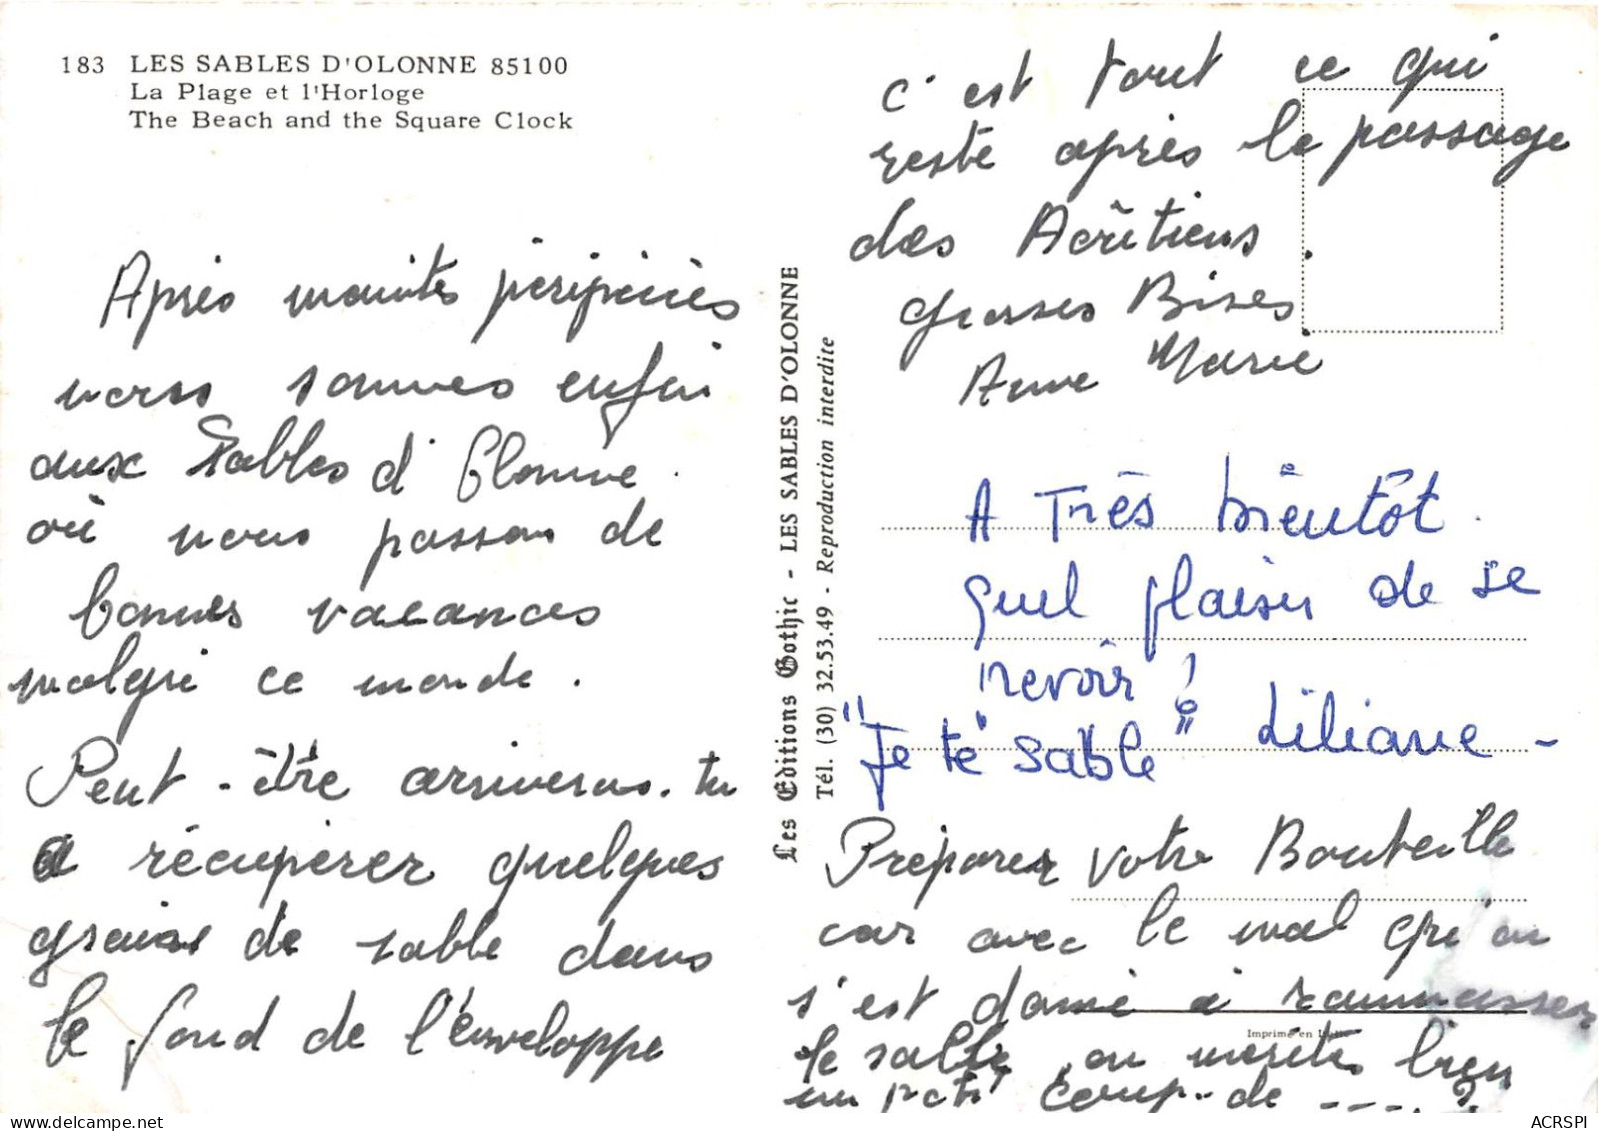 183 LES SABLES D'OLONNE 85100
La Plage et l'Horloge
The Beach and the Square Clock
Après maintes péripécies
nous sommes enfin
aux Sables d'Olonne.
où nous passons de
bonnes vacances
malgré ce monde.
Peut-être arriveras-tu
à récupérer quelques
grains de sable dans
le fond de l'enveloppe
c'est tout ce qui
reste après le passage
des
grosses Bises
Anne Marie
A Très bientôt.
Quel plaisir de se
revoir !
"Je te" sable" Liliane -
Préparer votre Bouteille
car avec le mal qu'on
s'est donné à rammasser
le sable, on mérite bien
un petit coup-de ----?
Les Editions Gothic - LES SABLES D'OLONNE
Tél. (30) 32.53.49 - Reproduction interdite
Imprimé en
ACRSPI